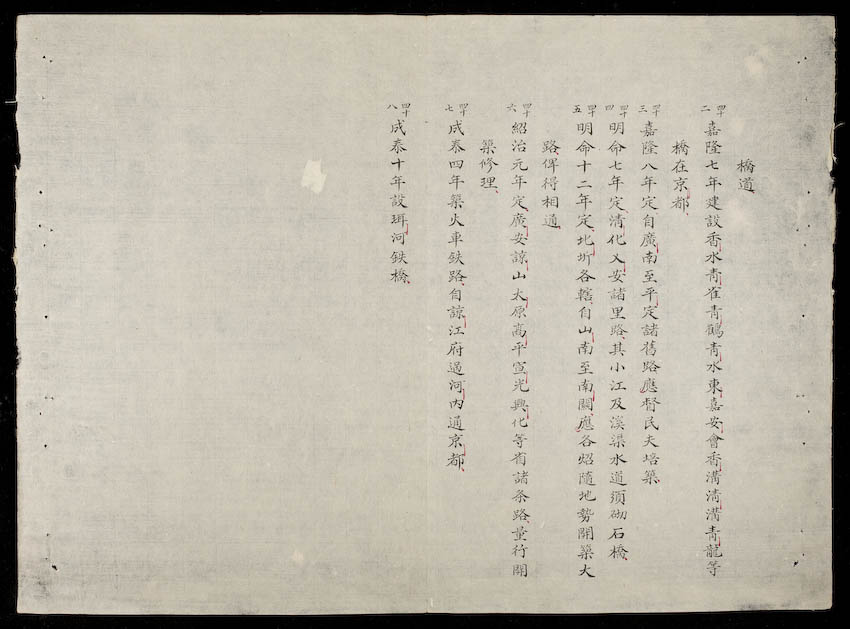 橋道
四十二 嘉隆七年建設香水青雀青鶴青水東嘉安會香溝清溝青龍等
橋在京都
四十三 嘉隆八年定自廣南至平定諸舊路應督民夫培築
四十四 明命七年定清化乂安諸里路其小江及溪渠水道須砌石橋
四十五 明命十二年定北圻各轄自山南至南關應各炤隨地勢開築大
路俾得相通
四十六 紹治元年定廣安諒山太原高平宣光興化等省諸条路量行開
築修理
四十七 成泰四年築火車鉄路自諒江府過河內通京都
四十八 成泰十年設珥河鉄橋